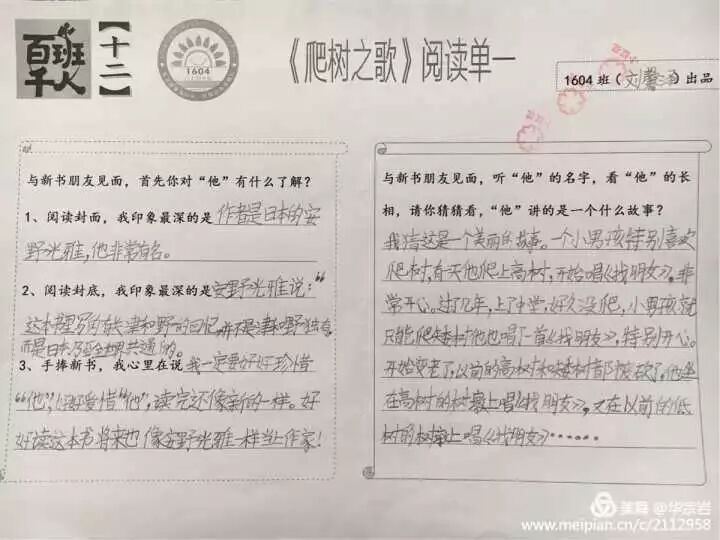 百班千人
【十二】
1604
《爬树之歌》阅读单一
1604班(刘馨泽)出品
与新书朋友见面，首先你对“他”有什么了解？
1、阅读封面，我印象最深的是作者是日本的安
野光雅，他非常有名。
2、阅读封底，我印象最深的是安野光雅说：“
这本書里的有我津和野的回忆，并不是津和野独有，
而是日本乃至全世界共通的。
3、手捧新书，我心里在说我一定要好好珍惜
“他”，好好爱惜“他”，读完还像新的一样。好
好读这本书，将来也像安野光雅一样当上作家！
与新书朋友见面，听“他”的名字，看“他”的长
相，请你猜猜看，“他”讲的是一个什么故事？
我猜这是一个美丽的故事。一个小男孩特别喜欢
爬树，有天他爬上高树，开始唱《找朋友》，非
常开心。过了几年，上了中学，好久没爬，小男孩就
只能爬矮树，他也唱了一首《找朋友》，特别开心。
开始变老了，以前的高树和矮树都被砍了，他坐
在高树的树墩上唱《找朋友》，又在以前的低
树的树墩上唱《找朋友》……
美篇 @华宗岩
www.meipian.cn/c/2112958